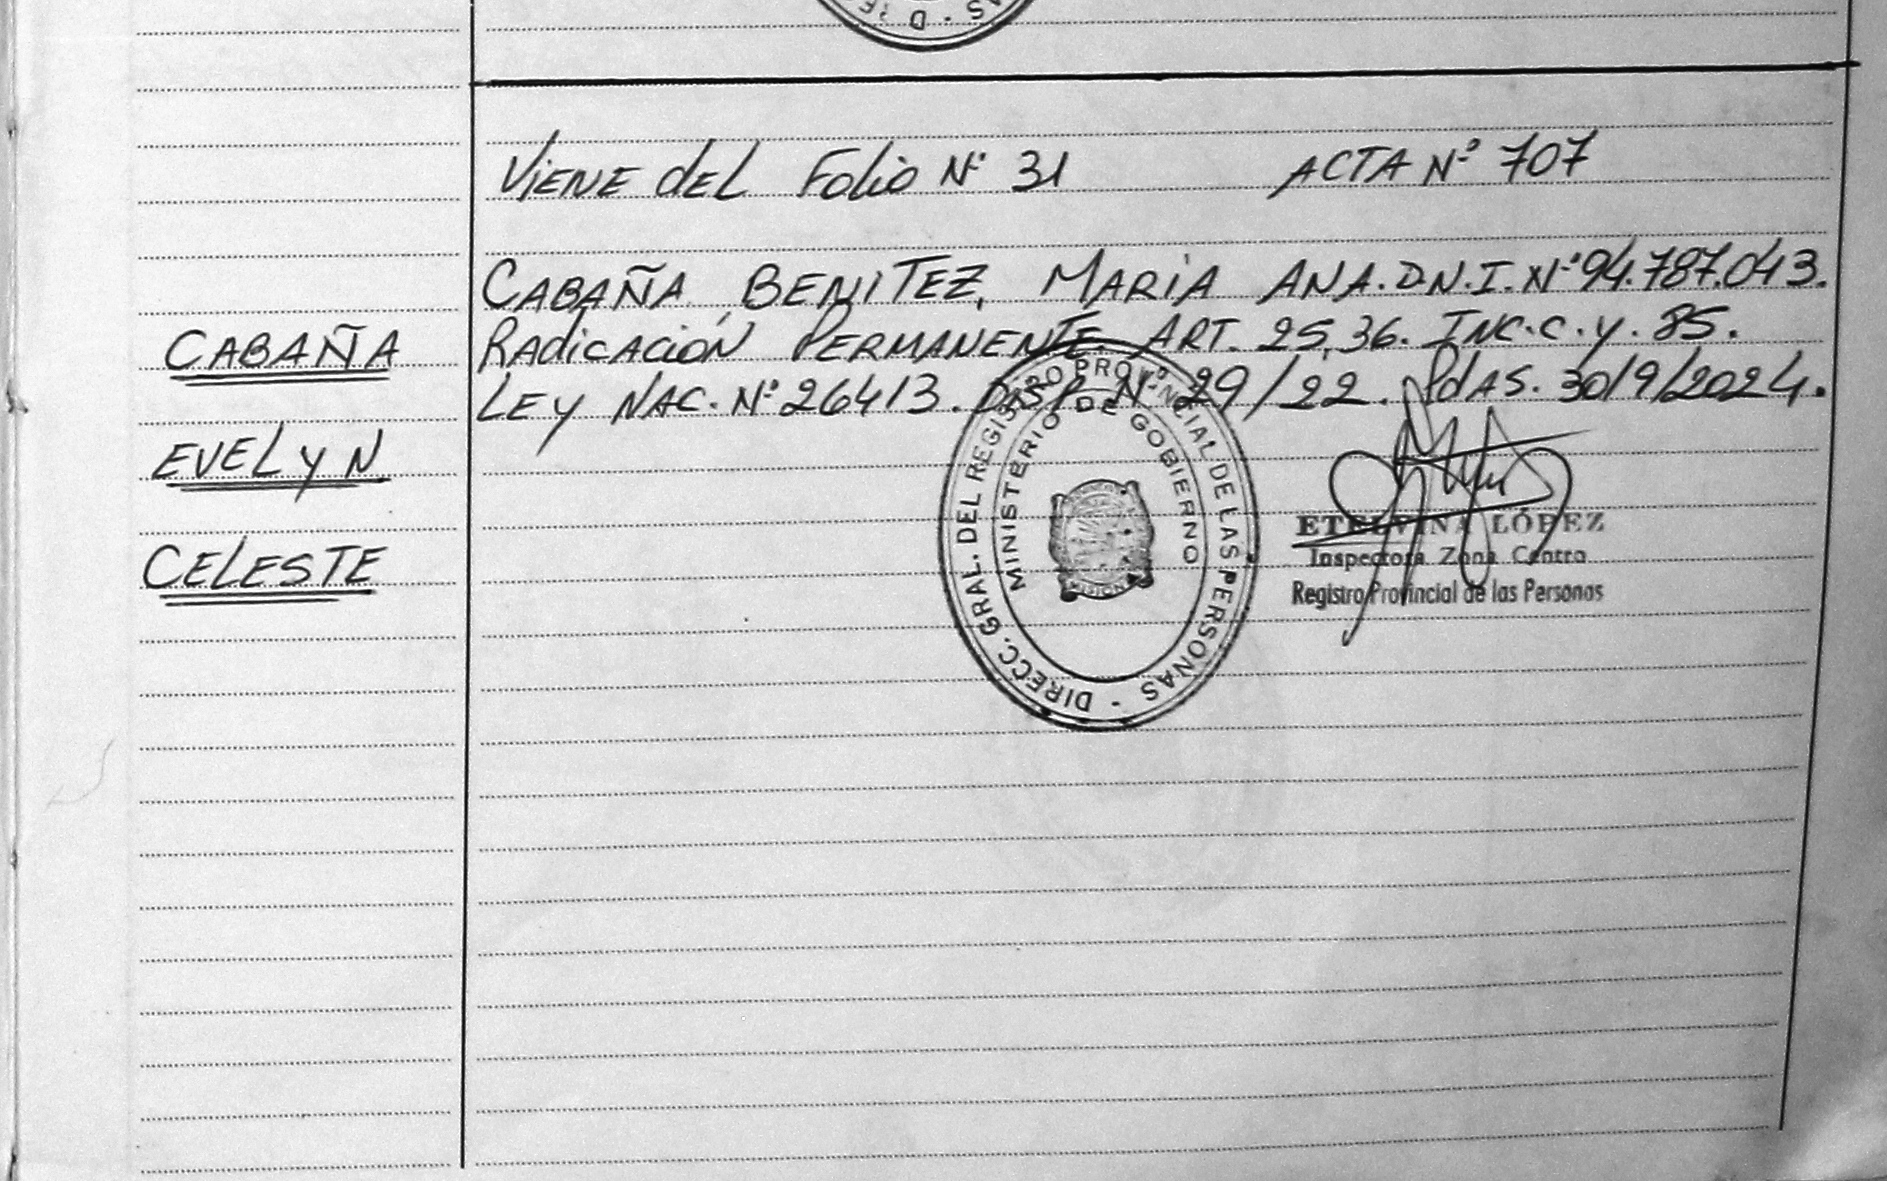 Viene del Folio Nº 31 ACTA Nº 707
CABAÑA BENITEZ, MARIA ANA. D.N.I. Nº 94.787.043.
CABAÑA
RADICACIÓN PERMANENTE. ART. 25, 36. INC. C. Y. 85.
LEY NAC. Nº 26413. DISP. Nº 29/22. PdAS. 30/9/2024.
EVELYN
CELESTE
DIRECC. GRAL. DEL REGISTRO PROVINCIAL DE LAS PERSONAS -
MINISTERIO DE GOBIERNO
ETELVINA LÓPEZ
Inspectora Zona Centro
Registro Provincial de las Personas